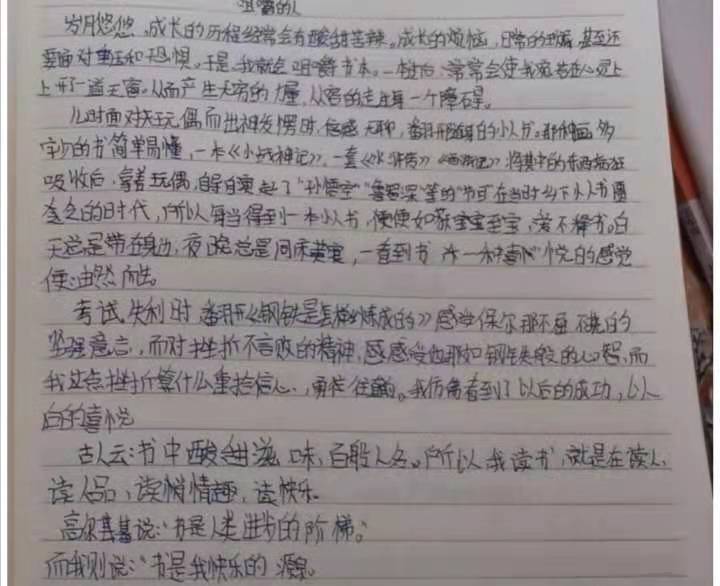 咀嚼的人
岁月悠悠,成长的历程经常会有酸甜苦辣。成长的烦恼,日常的琐碎,甚至还
要面对和恐惧。于是,我就去咀嚼书本。一本过后,常常会使我宛若在心灵上
上开了一道天窗。从而产生无穷的力量,从容的走过每一个障碍。
儿时面对玩偶而出神发愣时,倍感无聊,翻开随身的小人书。那种画多
字少的书简单易懂,一本《小战神记》,一套《水浒传》《西游记》,将其中的东西疯狂
吸收后,拿着玩偶,自导自演起了"孙悟空""鲁智深"等的节可在当时乡下小人书匮
乏的时代,所以每当得到一本小人书,便便如获至宝,爱不释手。白
天总是带在身边,夜晚总是同床,一看到书 种喜悦的感觉
便油然而生。
考试失利时 翻开《钢铁是怎样炼成的》感受保尔那不屈不挠的
坚强意志,面对挫折不言败的精神,感感受他那如钢铁般的心智,而
我这点挫折算什么重拾信心,勇往直前。我仿佛看到了以后的成功,以
后的喜悦
古人云:书中酸甜滋味,百般人各。所以我读书,就是在读人,
读人品,读情趣,读快乐。
高尔基说:"书是人类进步的阶梯。"
而我则说:"书是我快乐的源泉。